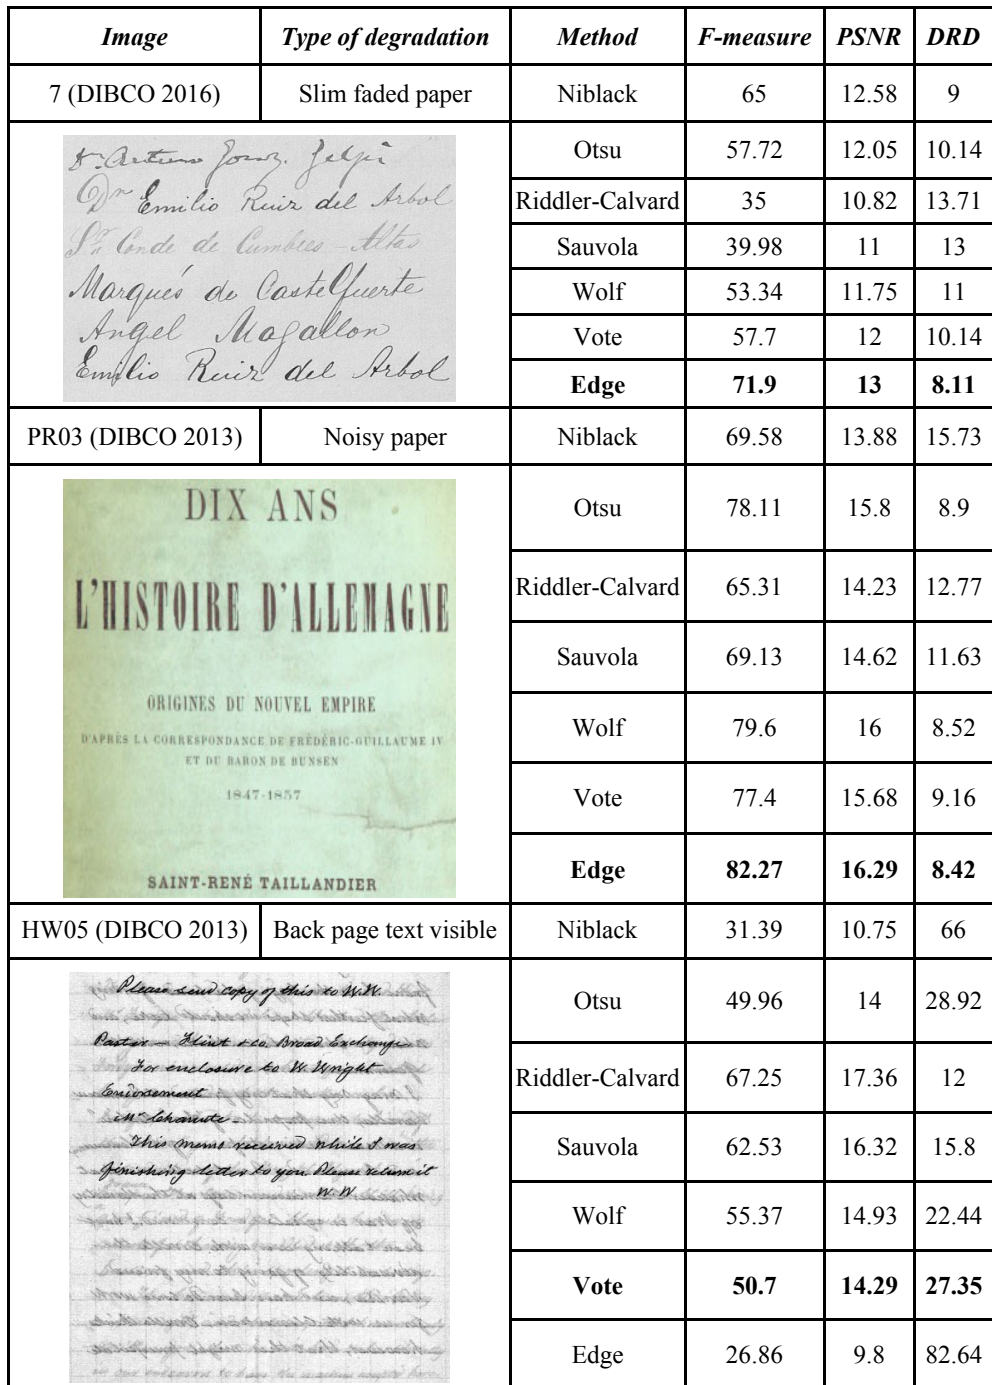 Image Type of degradation Method F-measure PSNR DRD
7 (DIBCO 2016) Slim faded paper Niblack 65 12.58 9
Dr. Arturo Gomz. Jelpi
Dn Emilio Ruiz del Arbol
Sr. Conde de Cumbres-Altas
Marqués de Castelfuerte
Angel Magallon
Emilio Ruiz del Arbol
Otsu 57.72 12.05 10.14
Riddler-Calvard 35 10.82 13.71
Sauvola 39.98 11 13
Wolf 53.34 11.75 11
Vote 57.7 12 10.14
Edge 71.9 13 8.11
PR03 (DIBCO 2013) Noisy paper Niblack 69.58 13.88 15.73
DIX ANS
L'HISTOIRE D'ALLEMAGNE
ORIGINES DU NOUVEL EMPIRE
D'APRÈS LA CORRESPONDANCE DE FRÉDÉRIC-GUILLAUME IV
ET DU BARON DE BUNSEN
1847-1857
SAINT-RENÉ TAILLANDIER
Otsu 78.11 15.8 8.9
Riddler-Calvard 65.31 14.23 12.77
Sauvola 69.13 14.62 11.63
Wolf 79.6 16 8.52
Vote 77.4 15.68 9.16
Edge 82.27 16.29 8.42
HW05 (DIBCO 2013) Back page text visible Niblack 31.39 10.75 66
Please send copy of this to W.W.
Flint & Co. Broad Exchange
For enclosure to W. Wright
Endorsement
Mr Chanute
This memo received while I was
finishing letter to you Please return it
W. W
Otsu 49.96 14 28.92
Riddler-Calvard 67.25 17.36 12
Sauvola 62.53 16.32 15.8
Wolf 55.37 14.93 22.44
Vote 50.7 14.29 27.35
Edge 26.86 9.8 82.64